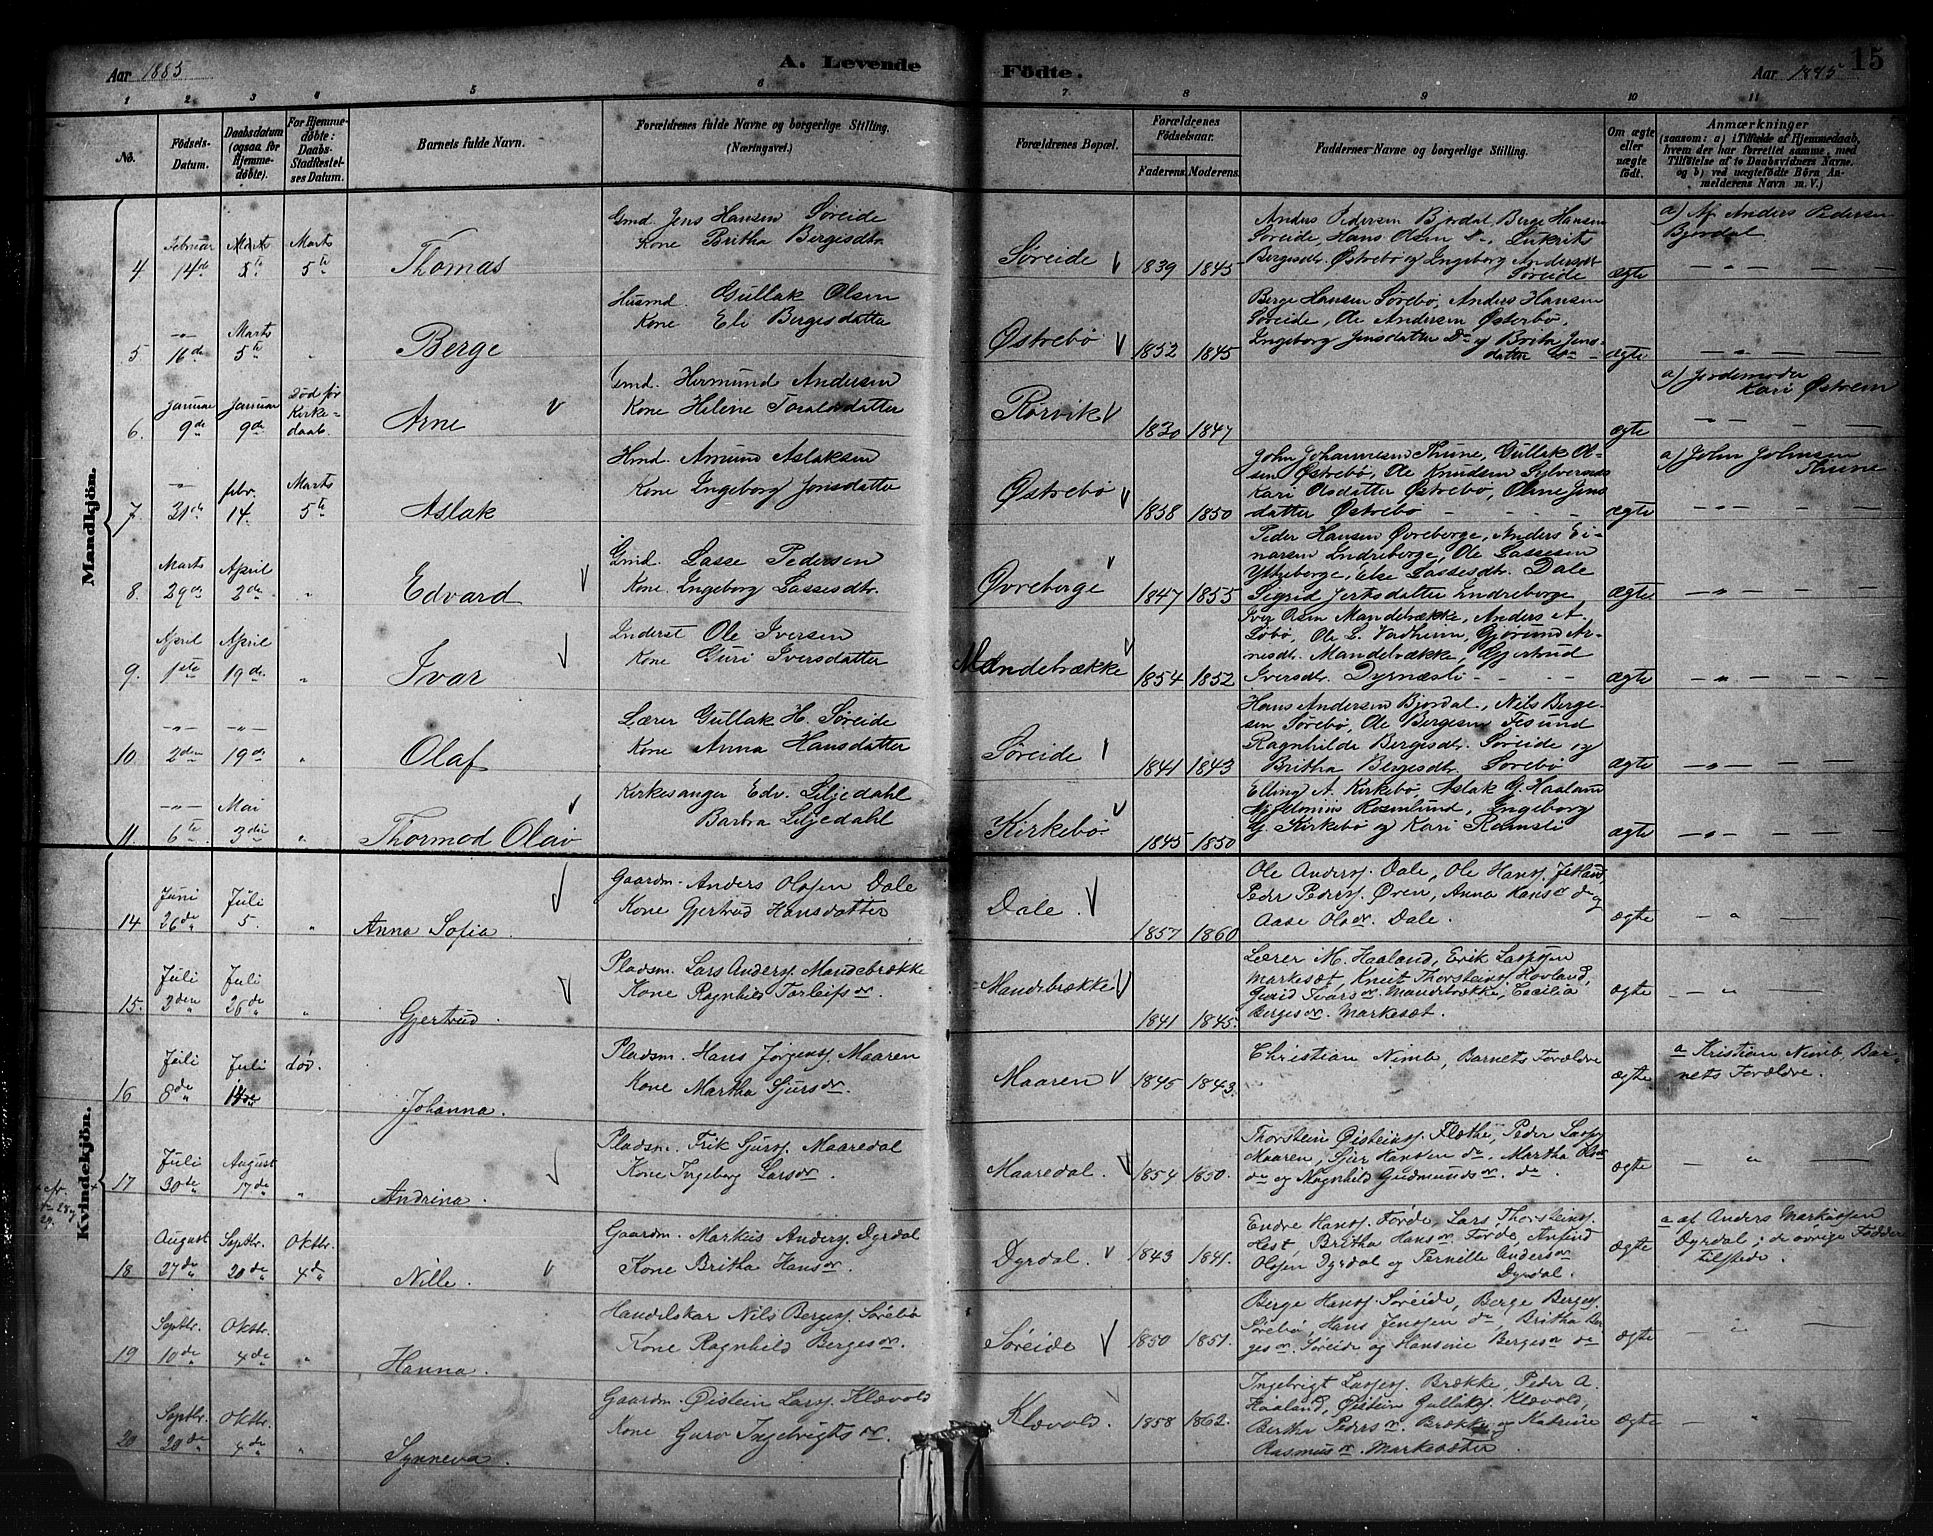 Aar 1885
A. Levende
Födte.
Aar 1885
15
1 2 3 4 5 6 7 8 9 10 11
No.
Födsels-
Datum.
Daabsdatum
(ogsaa for
Hjemme-
døbte).
For Hjemme-
døbte:
Daabs-
Stadfæstel-
ses Datum.
Barnets fulde Navn.
Forældrenes fulde Navne og borgerlige Stilling.
(Næringsvei.)
Forældrenes Bopæl.
Forældrenes
Födselsaar.
Faderens. Moderens.
Faddernes Navne og borgerlige Stilling.
Om ægte
eller
uægte
födt.
Anmærkninger
(saasom: a) i Tilfælde af Hjemmedaab,
hvem der har forrettet samme, med
Tilföielse af to Daabsvidners Navne,
og b) ved uægtefödte Börn An-
melderens Navn m. V.)
Mandkjön.
4
Februar
14de
Marts
5te
Marts
5te
Thomas
Gmd. Jens Hansen Søreide
Kone Britha Bergesdtr.
Søreide
1839 1845
Anders Pedersen Bjordal, Berge Hansen
Søreide, Hans Olsen Do,
Bergesdtr. Østrebø og Ingeborg Andersdtr
Søreide
ægte
a) Af Anders Pedersen
Bjordal
5
16de
Marts
5te
Berge
Husmd. Gullak Olsen
Kone Eli Bergesdatter
Østrebø
1852 1845
Berge Hansen Sørebø, Anders Hansen
Søreide, Ole Andersen Østerbø,
Ingeborg Jensdatter Do og Britha Jens-
datter Do
ægte
6.
Januar
9de
Januar
9de
Død før
Kirke-
daab.
Arne
Gmd. Hermund Andersen
Kone Helene Toralvsdatter
Rørvik
1830 1847
ægte
a) Jordemoder
Kari Østrem
7.
31te
febr.
14.
Marts
5te
Aslak
Hmd. Amund Aslaksen
Kone Ingeborg Jonsdatter
Østrebø
1858 1850
John Johannesen Thune, Gullak Ol-
sen Østrebø, Ole Knudsen Sylvernæs
Kari Olsdatter Østrebø, Oline Jens
datter Østrebø
ægte
a) John Johnsen
Thune
8.
Marts
29de
April
2de
Edvard
Gmd. Lasse Pedersen
Kone Ingeborg Lassesdtr.
Øvreberge
1847 1855
Peder Hansen Øvreberge, Anders Ei-
narsen Indreberge, Ole Lassesen
Yttreberge, Else Lassesdtr. Dale
Sigrid Jertsdatter Indreberge
ægte
9.
April
1ste
April
19de
Ivar
Inderst Ole Iversen
Kone Guri Iversdatter
Mandebrække
1854 1852
Iver Olsen Mandebrække, Anders A.
Løbø, Ole L. Vadheim, Gjørund Ar-
nesdtr. Mandebrække, Gjertrud
Iversdtr. Dyrnæsli
ægte
10
2den
19de
Olaf
Lærer Gullak H. Søreide
Kone Anna Hansdatter
Søreide
1841 1843
Hans Andersen Bjordal, Nils Berge-
sen Sørebø, Ole Bergesen
Ragnhilde Bergesdtr. Søreide og
Britha Bergesdtr. Sørebø
ægte
11.
6te
Mai
3die
Thormod Olav
Kirkesanger Edv. Liljedahl
Barbra Liljedahl
Kirkebø
1845 1850
Elling A. Kirkebø, Aslak G. Haaland
Rosenlund, Ingeborg
G. Kirkebø og Kari Ramsli
ægte
Kvindekjön.
14
Juni
26de
Juli
5.
Anna Sofia
Gaardm. Anders Olsen Dale
Kone Gjertrud Hansdatter
Dale
1857 1860
Ole Anderss. Dale, Ole Hanss. Jetland,
Peder Peders. Øren, Anna Hansdr do og
Aase Olsdr. Dale.
ægte
15.
Juli
2den
Juli
26de
Gjertrud.
Pladsm. Lars Anders. Mandebrække
Kone Ragnhild Torleifsdr.
Mandebrække
1841 1845.
Lærer M. Haaland, Erik Lassesen
Markesæt, Knut Thorsteins. Hovland,
Gurid Ivarsdr. Mandebrække, Cecilia
Bergesdr. Markesæt.
ægte
16
Juli
8de
Juli
14de
død.
Johanna.
Pladsm. Hans Jørgens. Maaren
Kone Martha Sjursdr.
Maaren
1845 1843.
Christian Nimb, Barnets Forældre
ægte
a Kristian Nimb, Bar-
nets Forældre.
17
Juli
30te
August
17de
Andrina.
Pladsm. Erik Sjurss. Maaredal
Kone Ingeborg Larsdr.
Maaredal.
1854 1850.
Thorstein Øisteins. Flæthe, Peder Lasses.
Maaren, Sjur Hansen do, Martha Olsdr
do og Magnhild Gudmundsdr. do
ægte
18
August
27de
Septbr.
20de
Oktbr.
4de
Nille.
Gaardm. Markus Anders. Dyrdal
Kone Britha Hansdr.
Dyrdal.
1843 1841.
Endre Hanss. Førde, Lars Thorsteins.
Hest, Britha Hansdr. Førde, Anfind
Olsen Dyrdal og Pernille Andersdr
Dyrdal.
ægte
a af Anders Markussen
Dyrdal i de øvrige Fadderes
tilstede.
19
Septbr.
10de
Oktbr.
4de
Hanna.
Handelskar Nils Bergess. Sørebø
Kone Ragnhild Bergesdr.
Søreide
1850 1851.
Berge Hanss. Søreide, Berge Bergess.
Sørebø, Hans Jensen do, Britha Ber-
gesdr. Søreide og Hansine Bergesdr do
ægte
20
Septbr.
20de
Oktbr.
4de
Synneva.
Gaardm. Øistein Larss. Klævold
Kone Guro Ingebrigtsdr.
Klævold.
1858 1862.
Ingebrigt Lasses. Brække, Peder A.
Haaland, Øistein Gullaks. Klævold,
Bertha Pedersdr. Brække og Katrine
Rasmusdr. Markesæter.
ægte